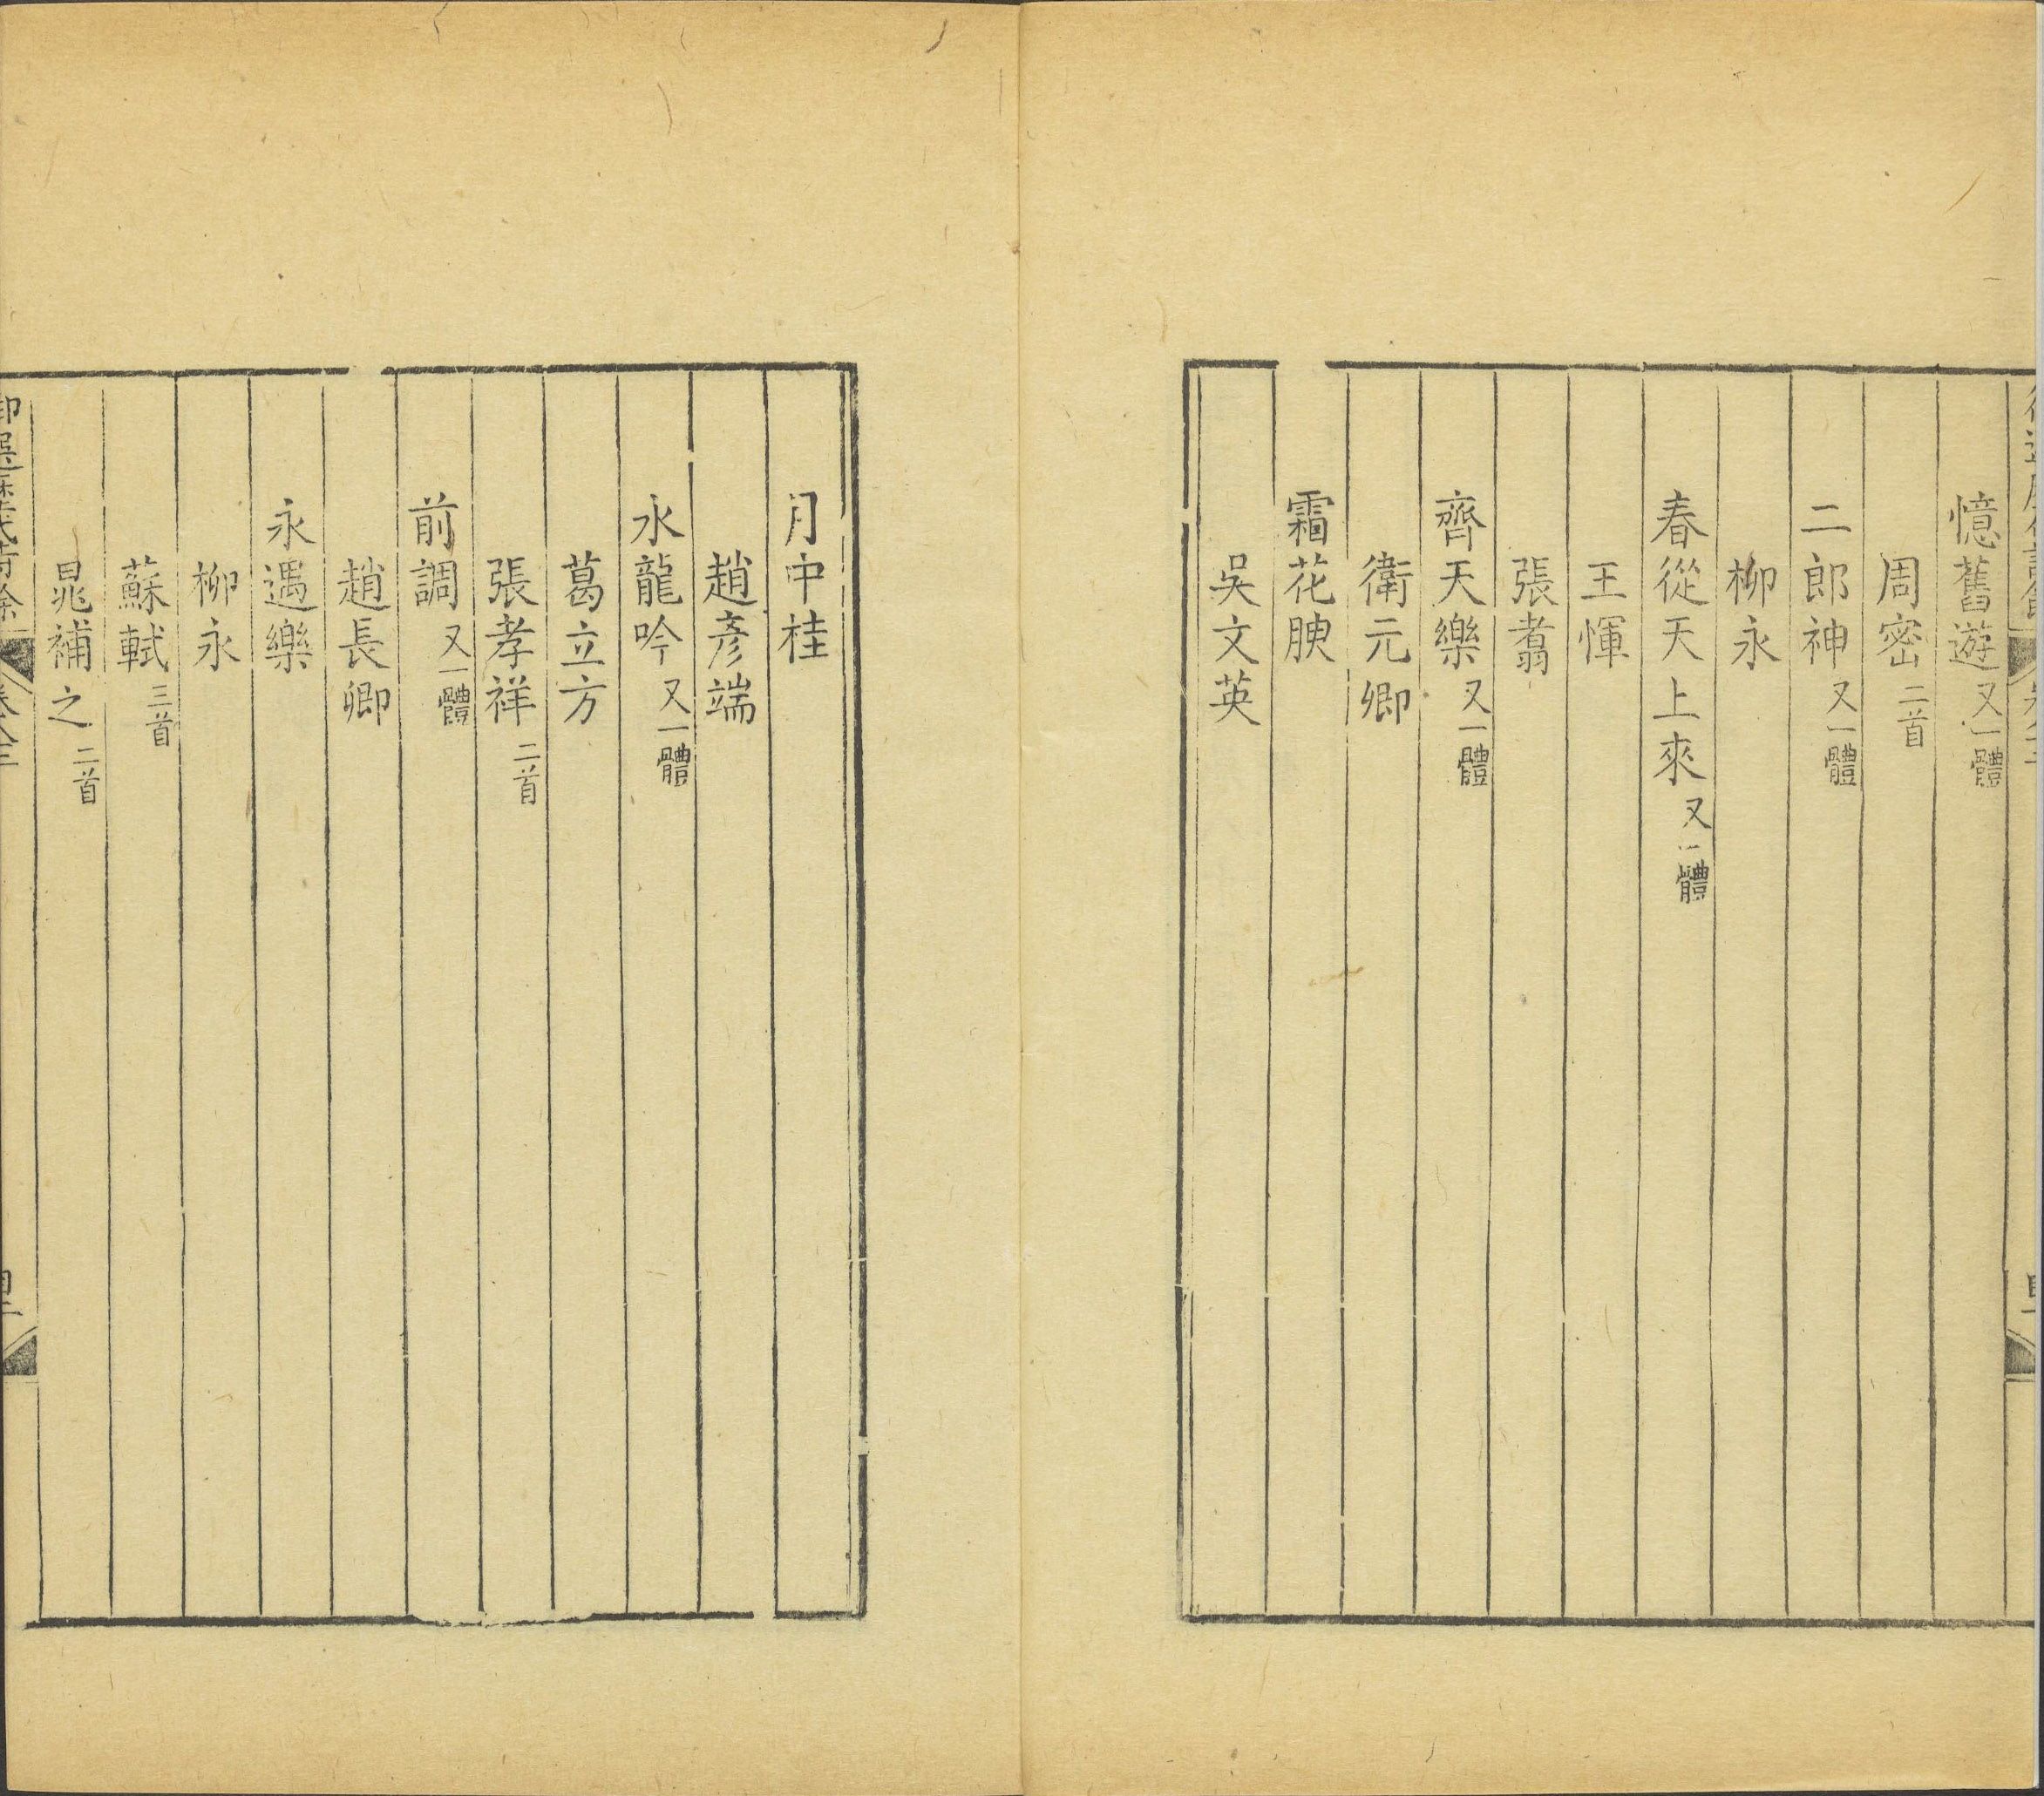 憶舊遊又一體
周密二首
二郎神又一體
柳永
春從天上來又一體
王惲
張翥
齊天樂又一體
衛元卿
霜花腴
吳文英
月中桂
趙彥端
水龍吟又一體
葛立方
張孝祥二首
前調又一體
趙長卿
永遇樂
柳永
蘇軾三首
晁補之二首